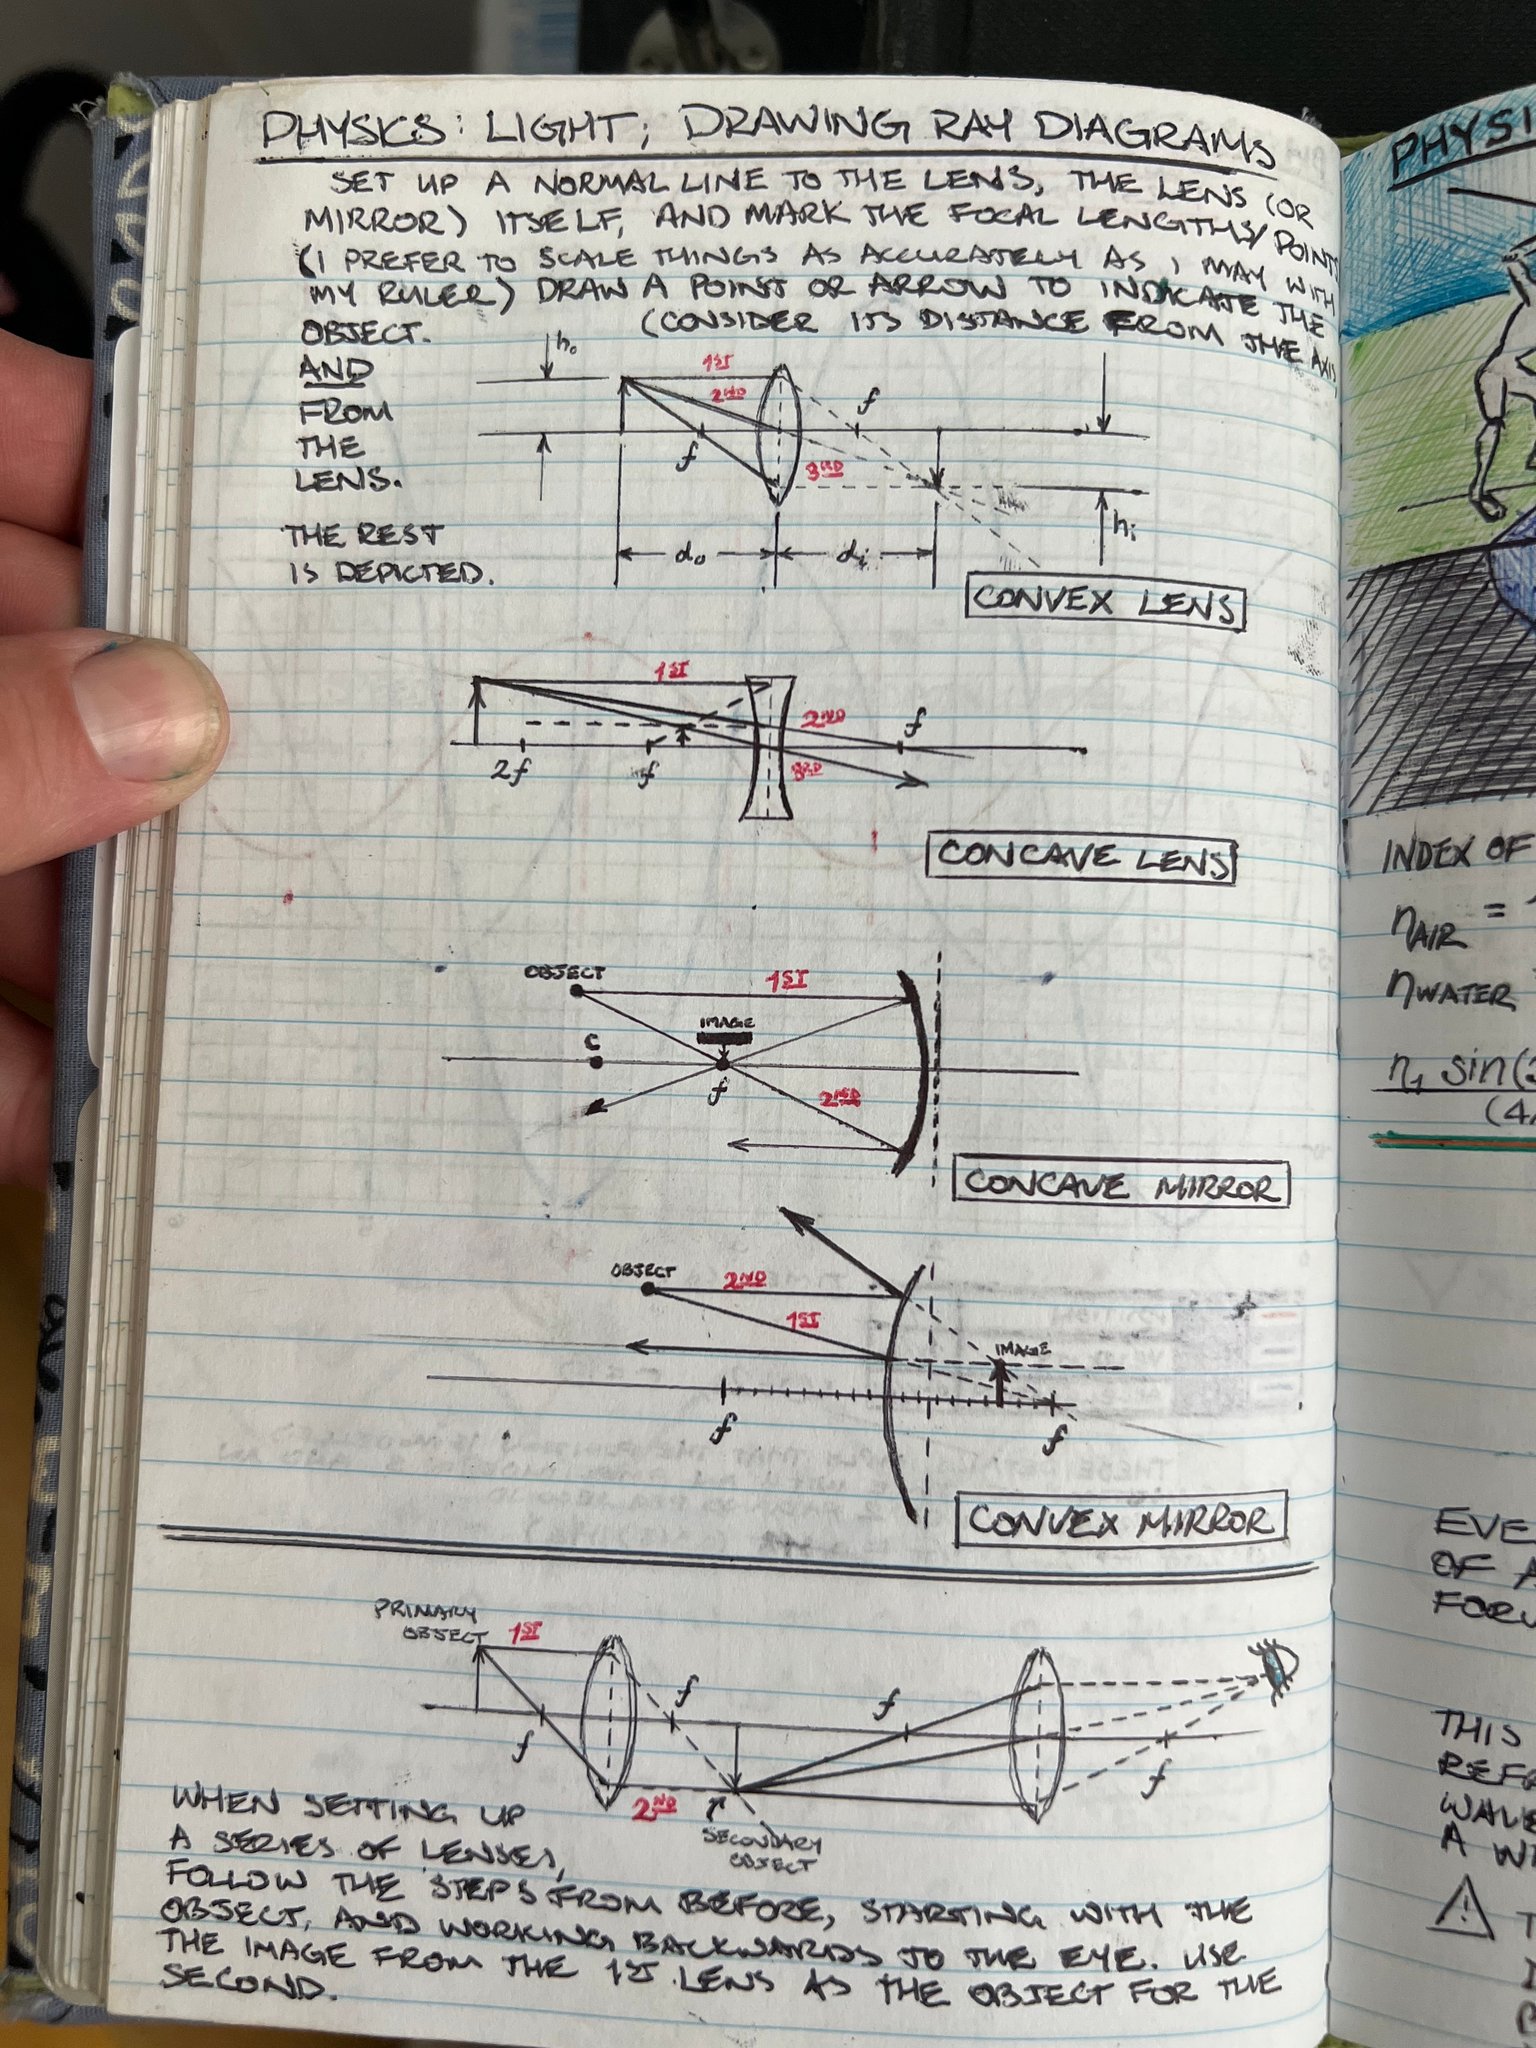 PHYSICS: LIGHT; DRAWING RAY DIAGRAMS
SET UP A NORMAL LINE TO THE LENS, THE LENS (OR
MIRROR) ITSELF, AND MARK THE FOCAL LENGTHS/POINTS
(I PREFER TO SCALE THINGS AS ACCURATELY AS I MAY WITH
MY RULER) DRAW A POINT OR ARROW TO INDICATE THE
OBJECT. (CONSIDER ITS DISTANCE FROM THE AXIS
AND
FROM
THE
LENS.
THE REST
IS DEPICTED.
h₀
1ST
2ND
3RD
f
f
d₀
dᵢ
hᵢ
CONVEX LENS
1ST
2ND
3RD
2f
f
f
CONCAVE LENS
OBJECT
1ST
IMAGE
C
f
2ND
CONCAVE MIRROR
OBJECT
2ND
1ST
IMAGE
f
f
CONVEX MIRROR
PRIMARY
OBJECT
1ST
f
f
f
f
2ND
SECONDARY
OBJECT
WHEN SETTING UP
A SERIES OF LENSES,
FOLLOW THE STEPS FROM BEFORE, STARTING WITH THE
OBJECT, AND WORKING BACKWARDS TO THE EYE. USE
THE IMAGE FROM THE 1ST LENS AS THE OBJECT FOR THE
SECOND.
PHYSI
INDEX OF
nAIR =
nWATER
n₁ sin(
(4
EVE
OF A
FORU
THIS
REF
WAVE
A W